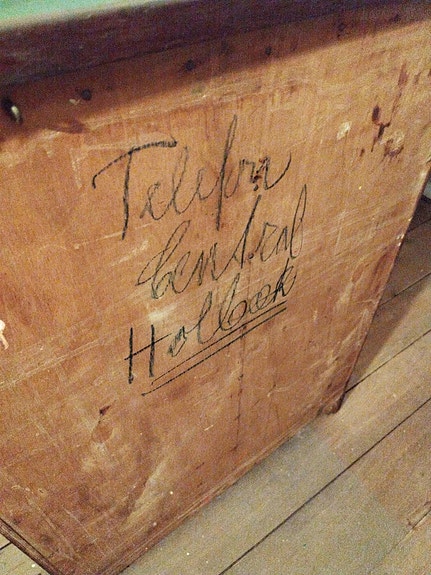 Telefon
Central
Holbæk